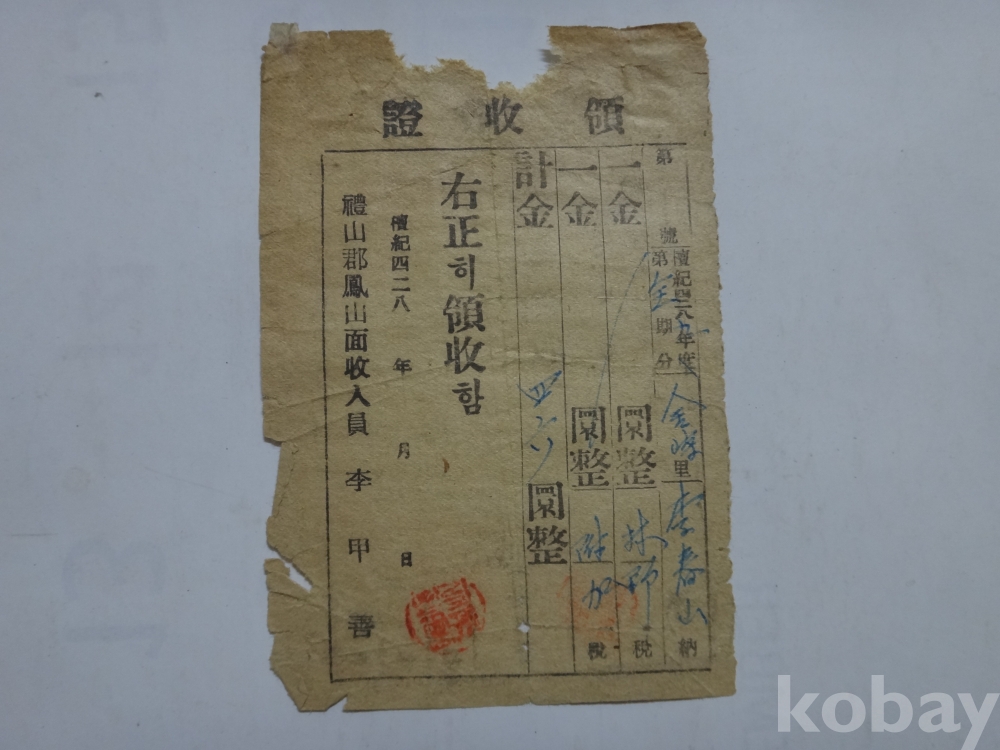 領收證
第 號
檀紀四二八 年度
第 全 期分
金 里 李春山 納
一金 圜整 林野 稅
一金 圜整 附加 稅
計金 圜整
右正히領收함
檀紀四二八 年 月 日
禮山郡鳳山面收入員 李甲善
kobay